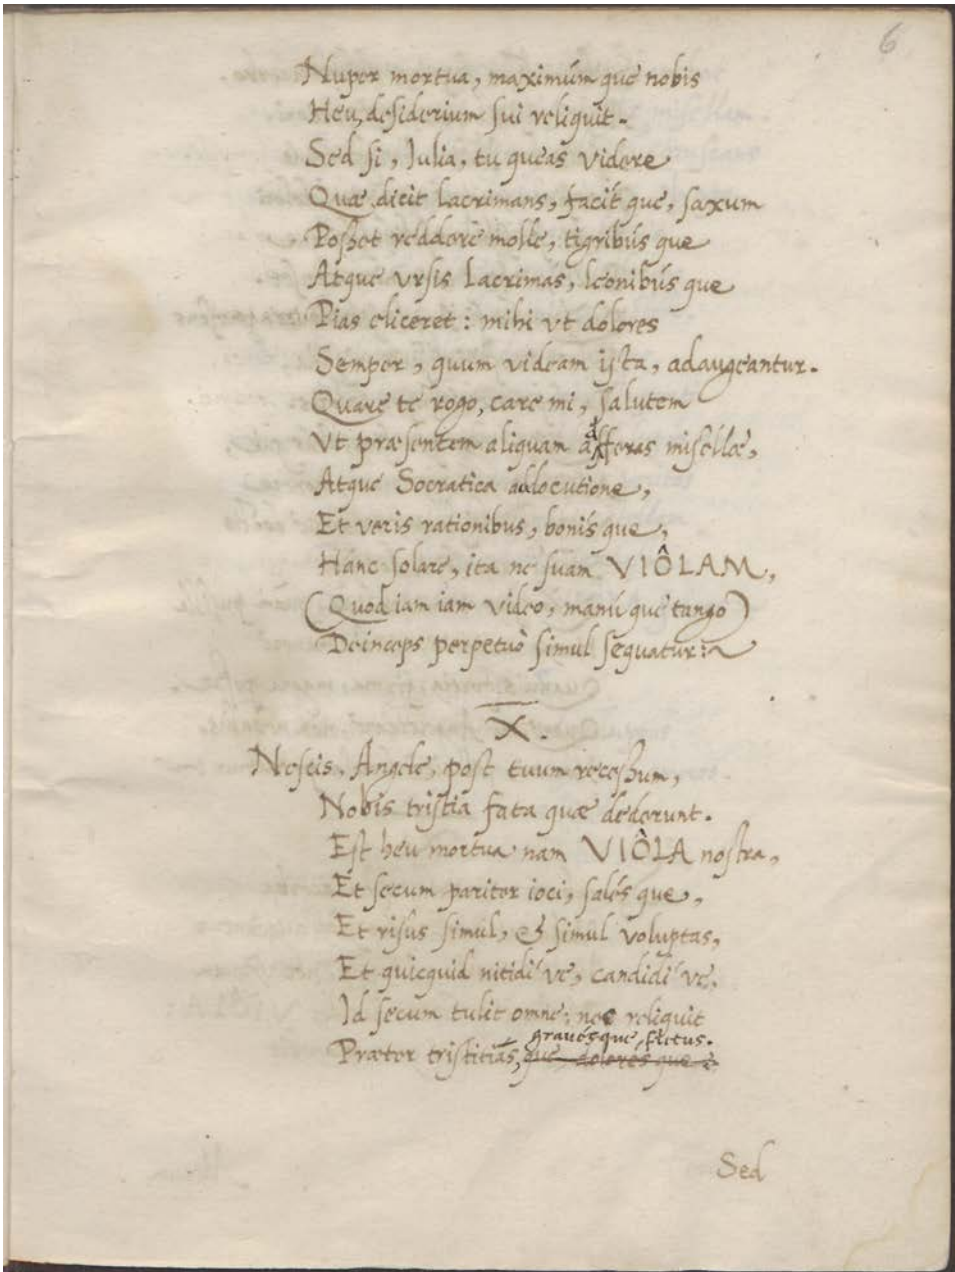 6
Nuper mortua, maximúm que nobis
Heu, desiderium sui reliquit.
Sed si, Iulia, tu queas videre
Quæ dicit lacrimans, facít que, saxum
Posset reddere molle, tigribús que
Atque vrsis lacrimas, leonibús que
Pias eliceret: mihi vt dolores
Semper, quum videam ista, adaugeantur.
Quare te rogo, care mi, salutem
Vt præsentem aliquam afferas misellæ,
Atque Socratica adlocutione,
Et veris rationibus, bonís que,
Hanc solare, ita ne suam VIÔLAM,
(Quod iam iam video, manú que tango)
Deinceps perpetuò simul sequatur:
X.
Nescis, Angele, post tuum recessum,
Nobis tristia fata quæ dederunt.
Est heu mortua nam VIÔLA nostra,
Et secum pariter ioci, salés que,
Et risus simul, & simul voluptas,
Et quicquid nitidí ve, candidí ve,
Id secum tulit omne: nec reliquit
gravesque, fletus.
Præter tristitias, que dolores que
Sed